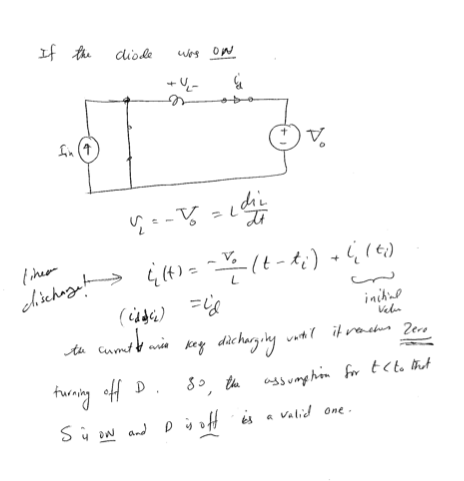 If the diode was ON
+ V_L -
i_d
I_in
+
-
V_o
V_L = -V_o = L di_L/dt
linear discharge! → i_L(t) = -V_o/L (t - t_i) + i_L(t_i)
= i_d
initial value
the current keep discharging until it reaches Zero
turning off D. So, the assumption for t < t_o that
S is ON and D is off is a valid one.